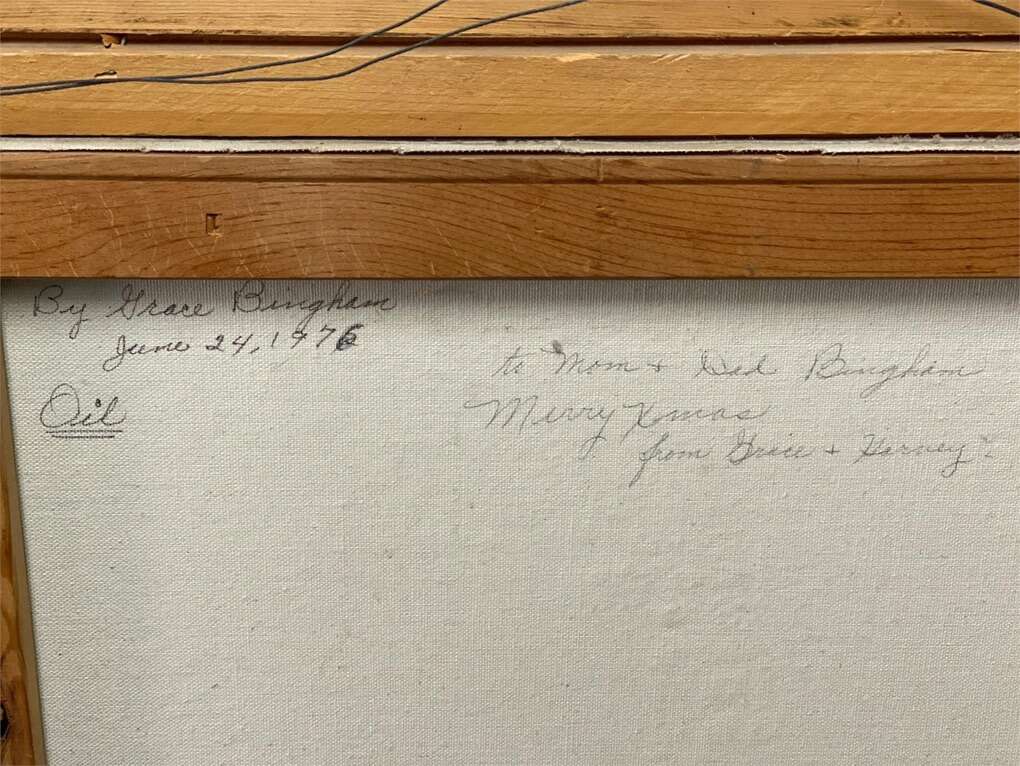 By Grace Bingham
June 24, 1976
Oil
to Mom + Dad Bingham
Merry Xmas
from Grace + Harvey